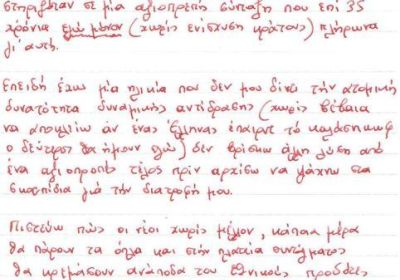 στηριζόταν σε μία αξιοπρεπή σύνταξη που επί 35
χρόνια εγώ μόνον (χωρίς ενίσχυση κράτους) πλήρωνα
γι' αυτή.
Επειδή έχω μία ηλικία που δεν μου δίνει την ατομική
δυνατότητα δυναμικής αντίδρασης (χωρίς βέβαια
να αποκλείω αν ένας Έλληνας έπαιρνε το καλάσνικωφ
ο δεύτερος θα ήμουν εγώ) δεν βρίσκω άλλη λύση από
ένα αξιοπρεπές τέλος πριν αρχίσω να ψάχνω στα
σκουπίδια για την διατροφή μου.
Πιστεύω πως οι νέοι χωρίς μέλλον, κάποια μέρα
θα πάρουν τα όπλα και στην πλατεία συντάγματος
θα κρεμάσουν ανάποδα τους εθνικούς προδότες